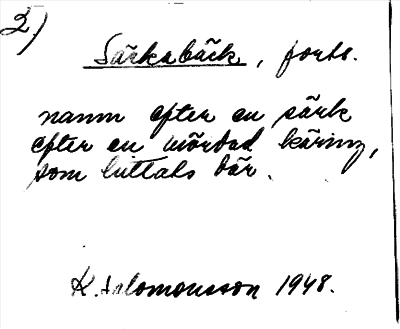 2)
Särkabäck, forts.
namn efter en särk
efter en mördad käring,
som hittats där.
K. Salomonsson 1948.